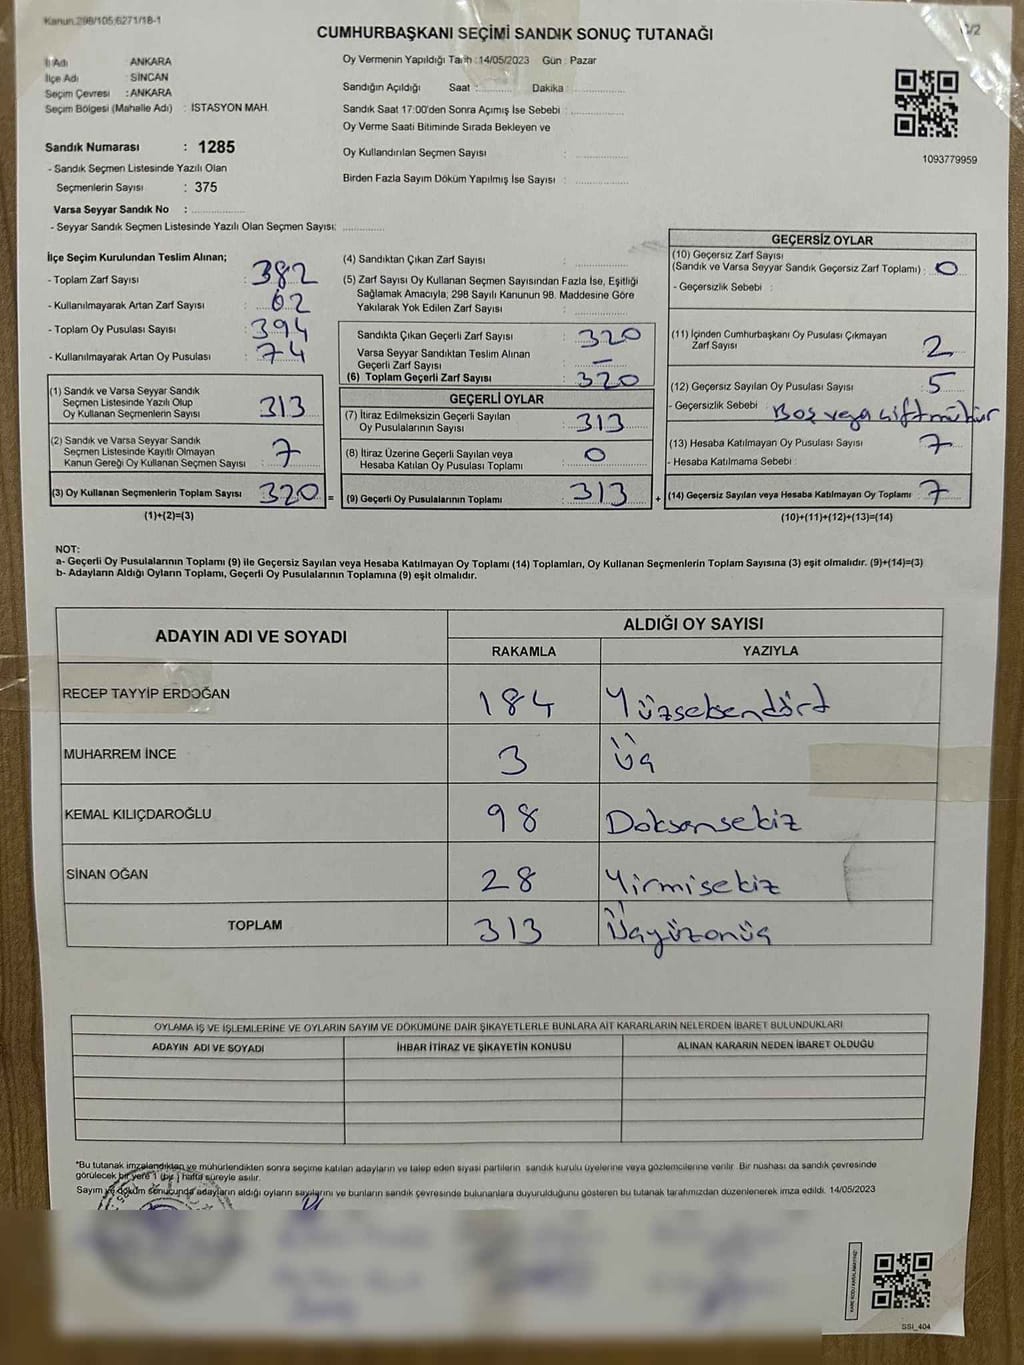 Kanun.298/105;6271/18-1
CUMHURBAŞKANI SEÇİMİ SANDIK SONUÇ TUTANAĞI
/2
İl Adı : ANKARA
İlçe Adı : SİNCAN
Seçim Çevresi : ANKARA
Seçim Bölgesi (Mahalle Adı) : İSTASYON MAH.
Sandık Numarası : 1285
- Sandık Seçmen Listesinde Yazılı Olan
Seçmenlerin Sayısı : 375
Varsa Seyyar Sandık No :
- Seyyar Sandık Seçmen Listesinde Yazılı Olan Seçmen Sayısı:
Oy Vermenin Yapıldığı Tarih :14/05/2023 Gün : Pazar
Sandığın Açıldığı Saat : Dakika :
Sandık Saat 17:00'den Sonra Açımış İse Sebebi :
Oy Verme Saati Bitiminde Sırada Bekleyen ve
Oy Kullandırılan Seçmen Sayısı :
Birden Fazla Sayım Döküm Yapılmış İse Sayısı :
1093779959
İlçe Seçim Kurulundan Teslim Alınan;
- Toplam Zarf Sayısı : 382
- Kullanılmayarak Artan Zarf Sayısı : 62
- Toplam Oy Pusulası Sayısı : 394
- Kullanılmayarak Artan Oy Pusulası : 74
(1) Sandık ve Varsa Seyyar Sandık
Seçmen Listesinde Yazılı Olup
Oy Kullanan Seçmenlerin Sayısı : 313
(2) Sandık ve Varsa Seyyar Sandık
Seçmen Listesinde Kayıtlı Olmayan
Kanun Gereği Oy Kullanan Seçmen Sayısı : 7
(3) Oy Kullanan Seçmenlerin Toplam Sayısı : 320 =
(1)+(2)=(3)
(4) Sandıktan Çıkan Zarf Sayısı :
(5) Zarf Sayısı Oy Kullanan Seçmen Sayısından Fazla İse, Eşitliği
Sağlamak Amacıyla, 298 Sayılı Kanunun 98. Maddesine Göre
Yakılarak Yok Edilen Zarf Sayısı :
Sandıkta Çıkan Geçerli Zarf Sayısı : 320
Varsa Seyyar Sandıktan Teslim Alınan
Geçerli Zarf Sayısı : –
(6) Toplam Geçerli Zarf Sayısı : 320
GEÇERLİ OYLAR
(7) İtiraz Edilmeksizin Geçerli Sayılan
Oy Pusulalarının Sayısı : 313
(8) İtiraz Üzerine Geçerli Sayılan veya
Hesaba Katılan Oy Pusulası Toplamı : 0
(9) Geçerli Oy Pusulalarının Toplamı : 313 +
GEÇERSİZ OYLAR
(10) Geçersiz Zarf Sayısı
(Sandık ve Varsa Seyyar Sandık Geçersiz Zarf Toplamı) : 0
- Geçersizlik Sebebi :
(11) İçinden Cumhurbaşkanı Oy Pusulası Çıkmayan
Zarf Sayısı : 2
(12) Geçersiz Sayılan Oy Pusulası Sayısı : 5
- Geçersizlik Sebebi : Boş veya çift mühür
(13) Hesaba Katılmayan Oy Pusulası Sayısı : 7
- Hesaba Katılmama Sebebi :
(14) Geçersiz Sayılan veya Hesaba Katılmayan Oy Toplamı : 7
(10)+(11)+(12)+(13)=(14)
NOT:
a- Geçerli Oy Pusulalarının Toplamı (9) ile Geçersiz Sayılan veya Hesaba Katılmayan Oy Toplamı (14) Toplamları, Oy Kullanan Seçmenlerin Toplam Sayısına (3) eşit olmalıdır. (9)+(14)=(3)
b- Adayların Aldığı Oyların Toplamı, Geçerli Oy Pusulalarının Toplamına (9) eşit olmalıdır.
ADAYIN ADI VE SOYADI ALDIĞI OY SAYISI
RAKAMLA YAZIYLA
RECEP TAYYİP ERDOĞAN 184 Yüzseksendört
MUHARREM İNCE 3 Üç
KEMAL KILIÇDAROĞLU 98 Doksansekiz
SİNAN OĞAN 28 Yirmisekiz
TOPLAM 313 Üçyüzonüç
OYLAMA İŞ VE İŞLEMLERİNE VE OYLARIN SAYIM VE DÖKÜMÜNE DAİR ŞİKAYETLERLE BUNLARA AİT KARARLARIN NELERDEN İBARET BULUNDUKLARI
ADAYIN ADI VE SOYADI İHBAR İTİRAZ VE ŞİKAYETİN KONUSU ALINAN KARARIN NEDEN İBARET OLDUĞU
*Bu tutanak imzalandıktan ve mühürlendikten sonra seçime katılan adayların ve talep eden siyasi partilerin sandık kurulu üyelerine veya gözlemcilerine verilir. Bir nüshası da sandık çevresinde
görülecek bir yere 1 (bir) hafta süreyle asılır.
Sayım ve döküm sonucunda adayların aldığı oyların sayılarını ve bunların sandık çevresinde bulunanlara duyurulduğunu gösteren bu tutanak tarafımızdan düzenlenerek imza edildi. 14/05/2023
SSİ_404